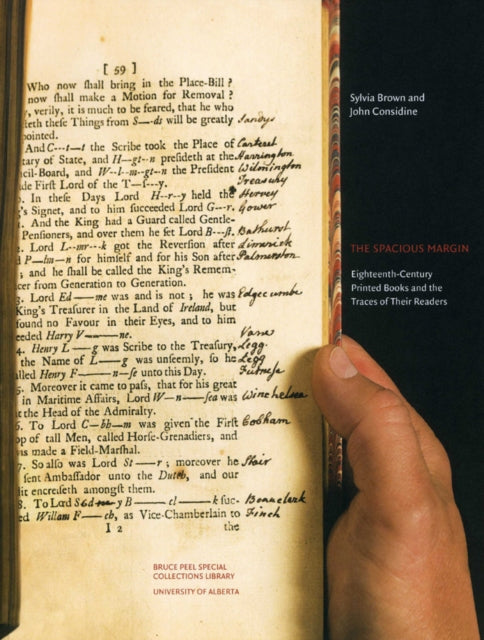 [ 59 ]
Who now ſhall bring in the Place-Bill ?
now ſhall make a Motion for Removal ?
, verily, it is much to be feared, that he who
teth theſe Things from S--ds will be greatly Sandys
ointed.
And C---t--t the Scribe took the Place of Carteret
tary of State, and H--gt--n preſideth at the Harrington
cil-Board, and W--l-m-gt--n the Preſident Wilmington
de Firſt Lord of the T--ſ---y. Treasury
. In theſe Days Lord H--r--y held the Hervey
's Signet, and to him ſucceeded Lord G---r. Gower
. And the King had a Guard called Gentle-
Penſioners, and over them he ſet Lord B---ſt. Bathurst
. Lord L--mr---k got the Reverſion after Limerick
d P--lm--n for himſelf and for his Son after Palmerston
; and he ſhall be called the King's Remem-
cer from Generation to Generation.
3. Lord Ed----me was and is not ; he was Edgecumbe
King's Treaſurer in the Land of Ireland, but
found no Favour in their Eyes, and to him
eeded Harry V----ne. Vane
4. Henry L---g was Scribe to the Treaſury, Legg.
the Name of L----g was unſeemly, ſo he Legg
lled Henry F-----n--ſe unto this Day. Furnese
5. Moreover it came to paſs, that for his great
in Maritime Affairs, Lord W--n---ſea was Winchelsea
t the Head of the Admiralty.
6. To Lord C--bh--m was given the Firſt Cobham
op of tall Men, called Horſe-Grenadiers, and
was made a Field-Marſhal.
7. So alſo was Lord St---r ; moreover he Stair
ſent Ambaſſador unto the Dutch, and our
it encreſeth amongſt them.
8. To Lord Sdy B---- cl ----k ſuc- Beauclerk
ed William F----ch, as Vice-Chamberlain to Finch
I 2 the
BRUCE PEEL SPECIAL
COLLECTIONS LIBRARY
UNIVERSITY OF ALBERTA
Sylvia Brown and
John Considine
THE SPACIOUS MARGIN
Eighteenth-Century
Printed Books and the
Traces of Their Readers